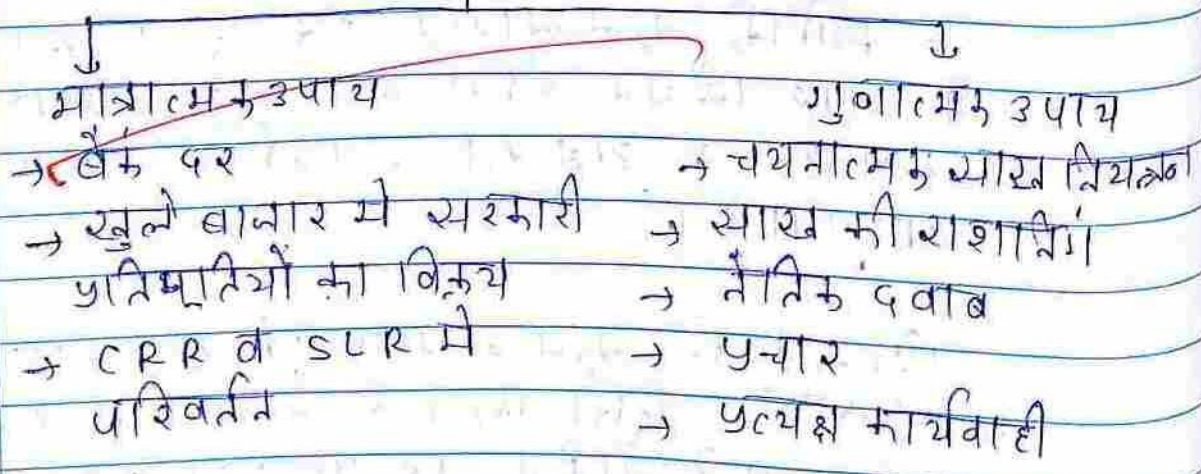 मात्रात्मक उपाय
→ बैंक दर
→ खुले बाजार मे सरकारी
प्रतिभूतियों का विक्रय
→ CRR व SLR मे
परिवर्तन
गुणात्मक उपाय
→ चयनात्मक साख नियत्रन
→ साख की राशनिगं
→ नैतिक दवाब
→ प्रचार
→ प्रत्यक्ष कार्यवाही